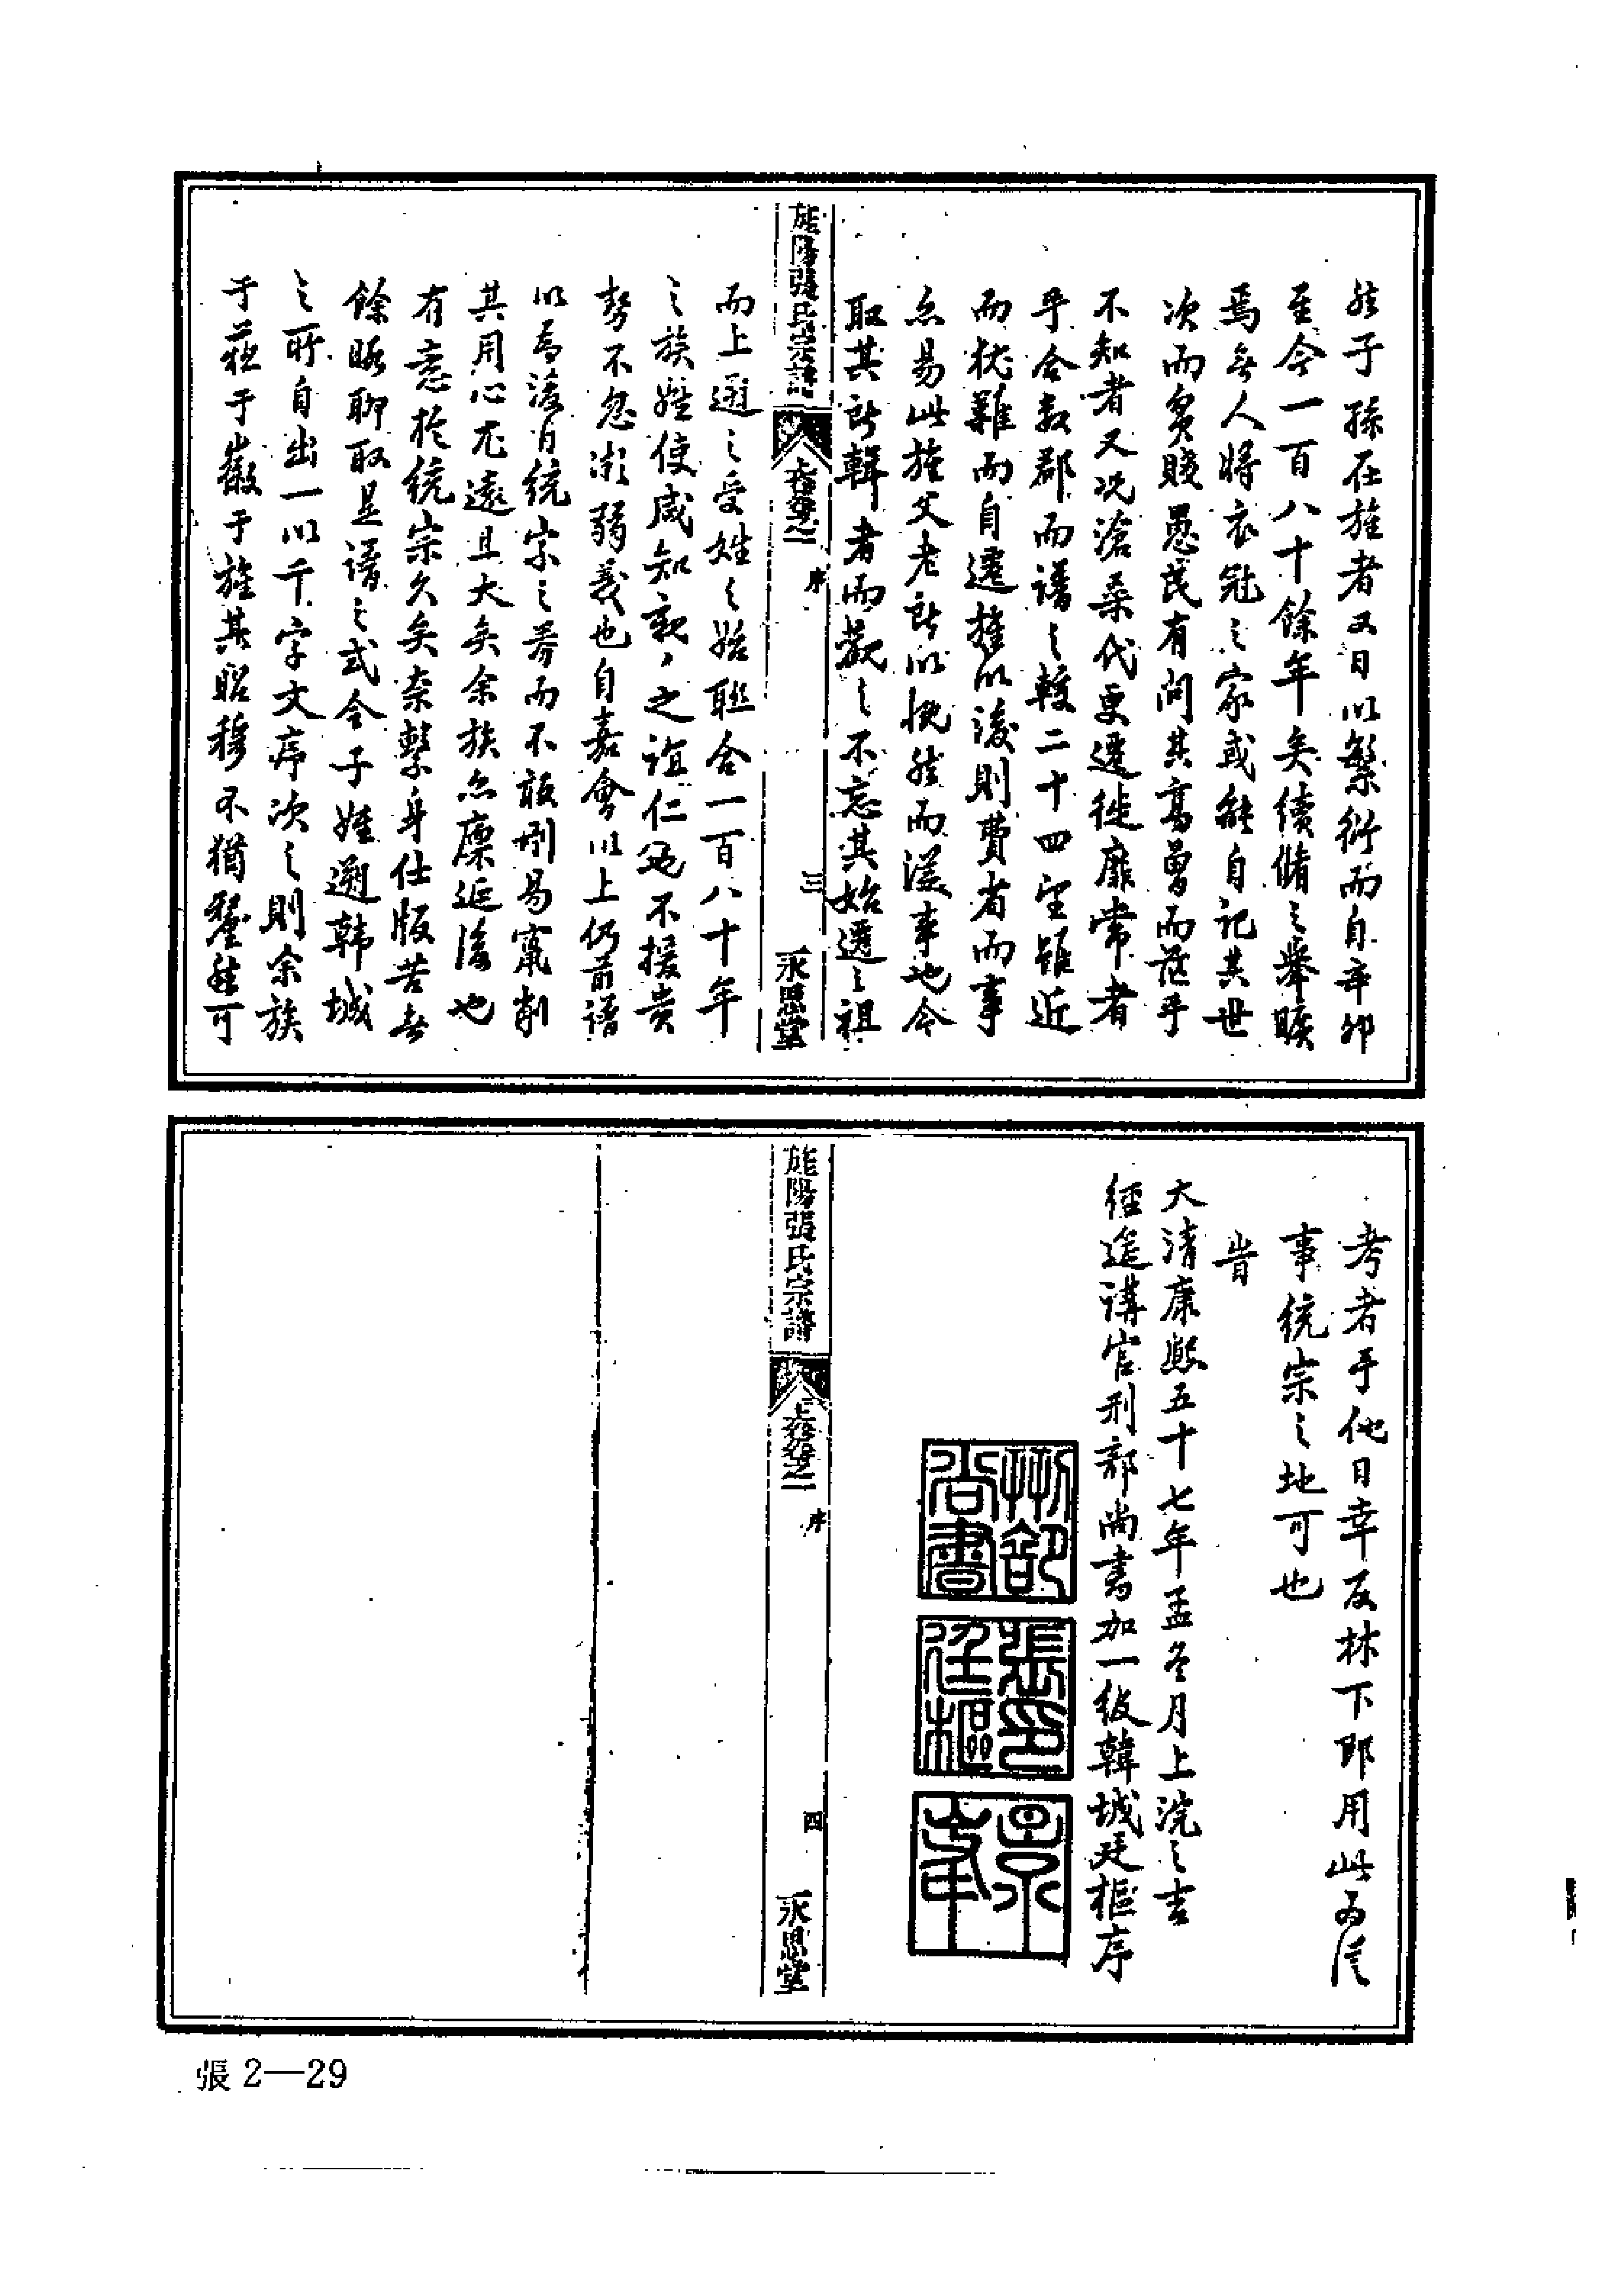 然子孫在旌者又日以繁衍而自辛卯
至今一百八十餘年矣續脩之舉曠
焉無人將衣冠之家或能自記其世
次而貧賤愚民有問其高曾而茫乎
不知者又况滄桑代更遷徙靡常者
乎合數郡而譜之較二十四望雖近
而猶難而自遷旌以後則費省而事
亦易此旌父老所以慨然而從事也今
取其所輯者而觀之不忘其始遷之祖
旌陽張氏宗譜 卷之一 序 三 永思堂
而上遡之受姓之始聯合一百八十年
之族姓使咸知親親之誼仁也不援貴
勢不忽漸弱義也自嘉會以上仍前譜
以為後日統宗之券而不敢刑易竄削
其用心尤遠且大矣余族亦廪延後也
有意於統宗久矣柰繫身仕版苦無
餘暇聊取是譜之式令子姪遡韓城
之所自出一以千字文序次之則余族
于蘇于徽于旌其昭穆不猶犂然可
旌陽張氏宗譜 卷之一 序 四 永思堂
考者乎他日幸反林下即用此為從
事統宗之地可也
旹
大清康熙五十七年孟冬月上浣之吉
經筵講官刑部尚書加一級韓城廷樞序
刑部尚書
張印廷樞
景峯
張2—29